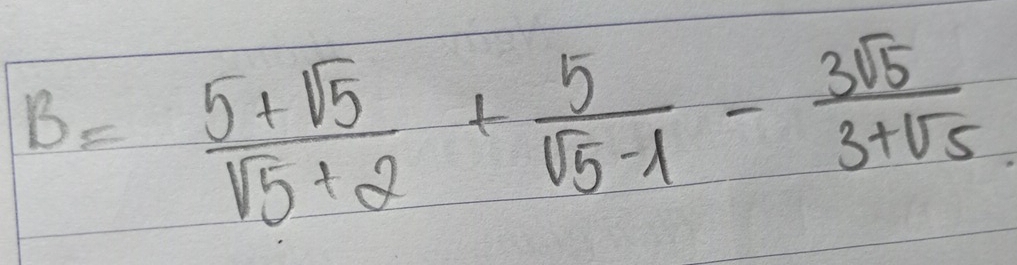 B = \frac{5 + \sqrt{5}}{\sqrt{5} + 2} + \frac{5}{\sqrt{5} - 1} - \frac{3\sqrt{5}}{3 + \sqrt{5}}.